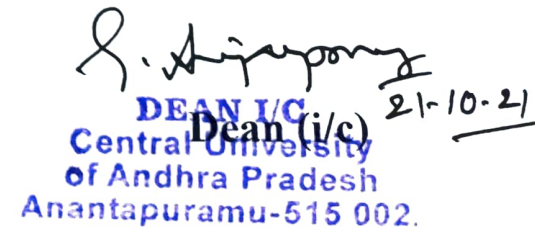 21-10-21
DEAN I/C
Dean (i/c)
Central University
of Andhra Pradesh
Anantapuramu-515 002.